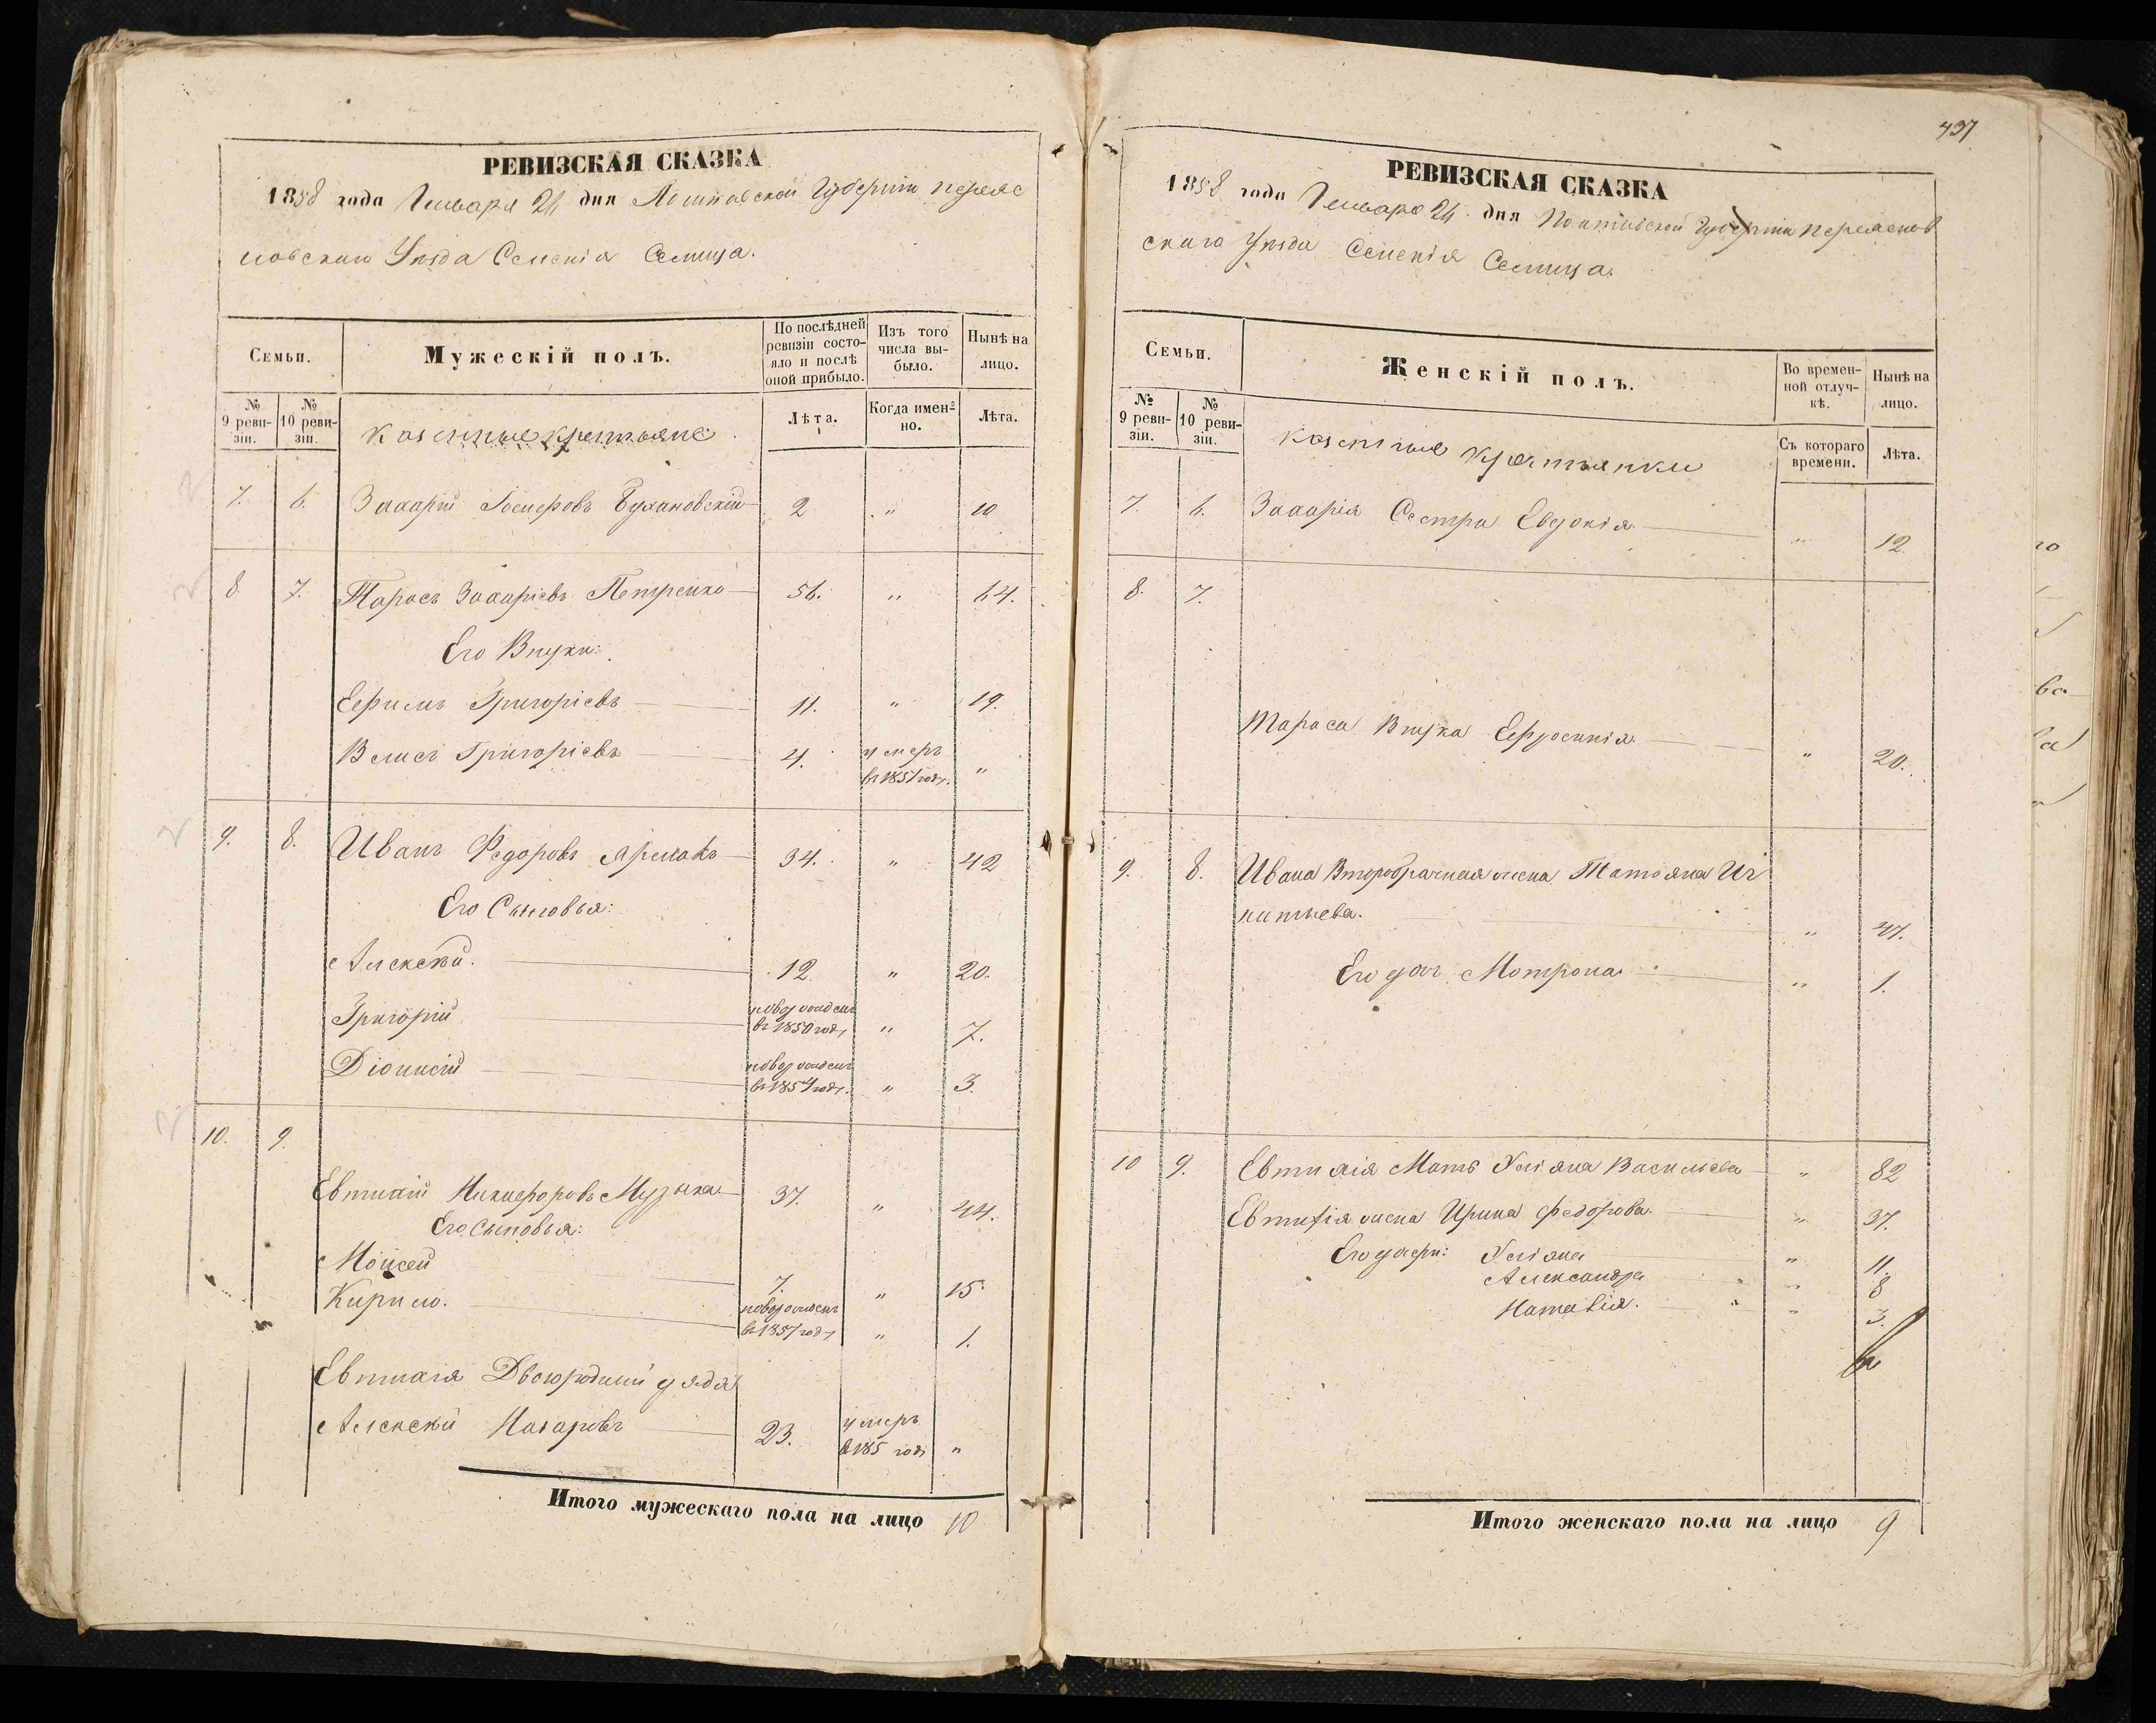 437
РЕВИЗСКАЯ СКАЗКА
1858 года Генваря 24 дня Полтавской Губерніи Переяс
ловскаго Уѣзда Селенія Селища.
Семьи.
Мужескій полъ.
По послѣдней ревизіи состояло и послѣ оной прибыло.
Изъ того числа выбыло.
Нынѣ на лицо.
№ 9 ревизіи.
№ 10 ревизіи.
Казенные крестьяне
Лѣта.
Когда именно.
Лѣта.
7. 6. Захарій Іосифовъ Бухановскій 2 " 10
8. 7. Тарасъ Захаріевъ Петренко 56. " 64.
Его Внуки:
Ефимъ Григоріевъ 11. " 19.
Григоріевъ 4. умеръ "
въ 1851 году.
9. 8. Иванъ Федоровъ 34. " 42
Его Сыновья:
Алексѣй. 12. " 20.
Григорій новорожденъ
въ 1850 году " 7.
Діонисій новорожденъ
въ 1854 году. " 3.
10. 9.
Евтихій Никифоровъ Музыка 37. " 44.
Его Сыновья:
Моисей 7. " 15.
Кирило. новорожденъ
въ 1857 году " 1.
Евтихія Двоюродный дядя
Алексѣй Назаровъ 23. умеръ
в 185 году "
Итого мужескаго пола на лицо 10
РЕВИЗСКАЯ СКАЗКА
1858 года Генваря 24 дня Полтавской Губерніи Переяслов
скаго Уѣзда Селенія Селища.
Семьи.
Женскій полъ.
Во временной отлучкѣ.
Нынѣ на лицо.
№ 9 ревизіи.
№ 10 ревизіи.
Казенные Крестьянки
Съ котораго времени.
Лѣта.
7. 6. Захарія Сестра Евдокія " 12.
8. 7.
Тараса Внука Ефросинія " 20.
9. 8. Ивана Второбрачная жена Татьяна Иг
натьева. " 41.
Его дочь Мотрона " 1.
10 9. Евтихія Мать Уліяна Васильева " 82
Евтихія жена Ирина Федорова " 37.
Его дочери: Уліяна " 11.
Александра " 8
Наталія. " 3.
Итого женскаго пола на лицо 9